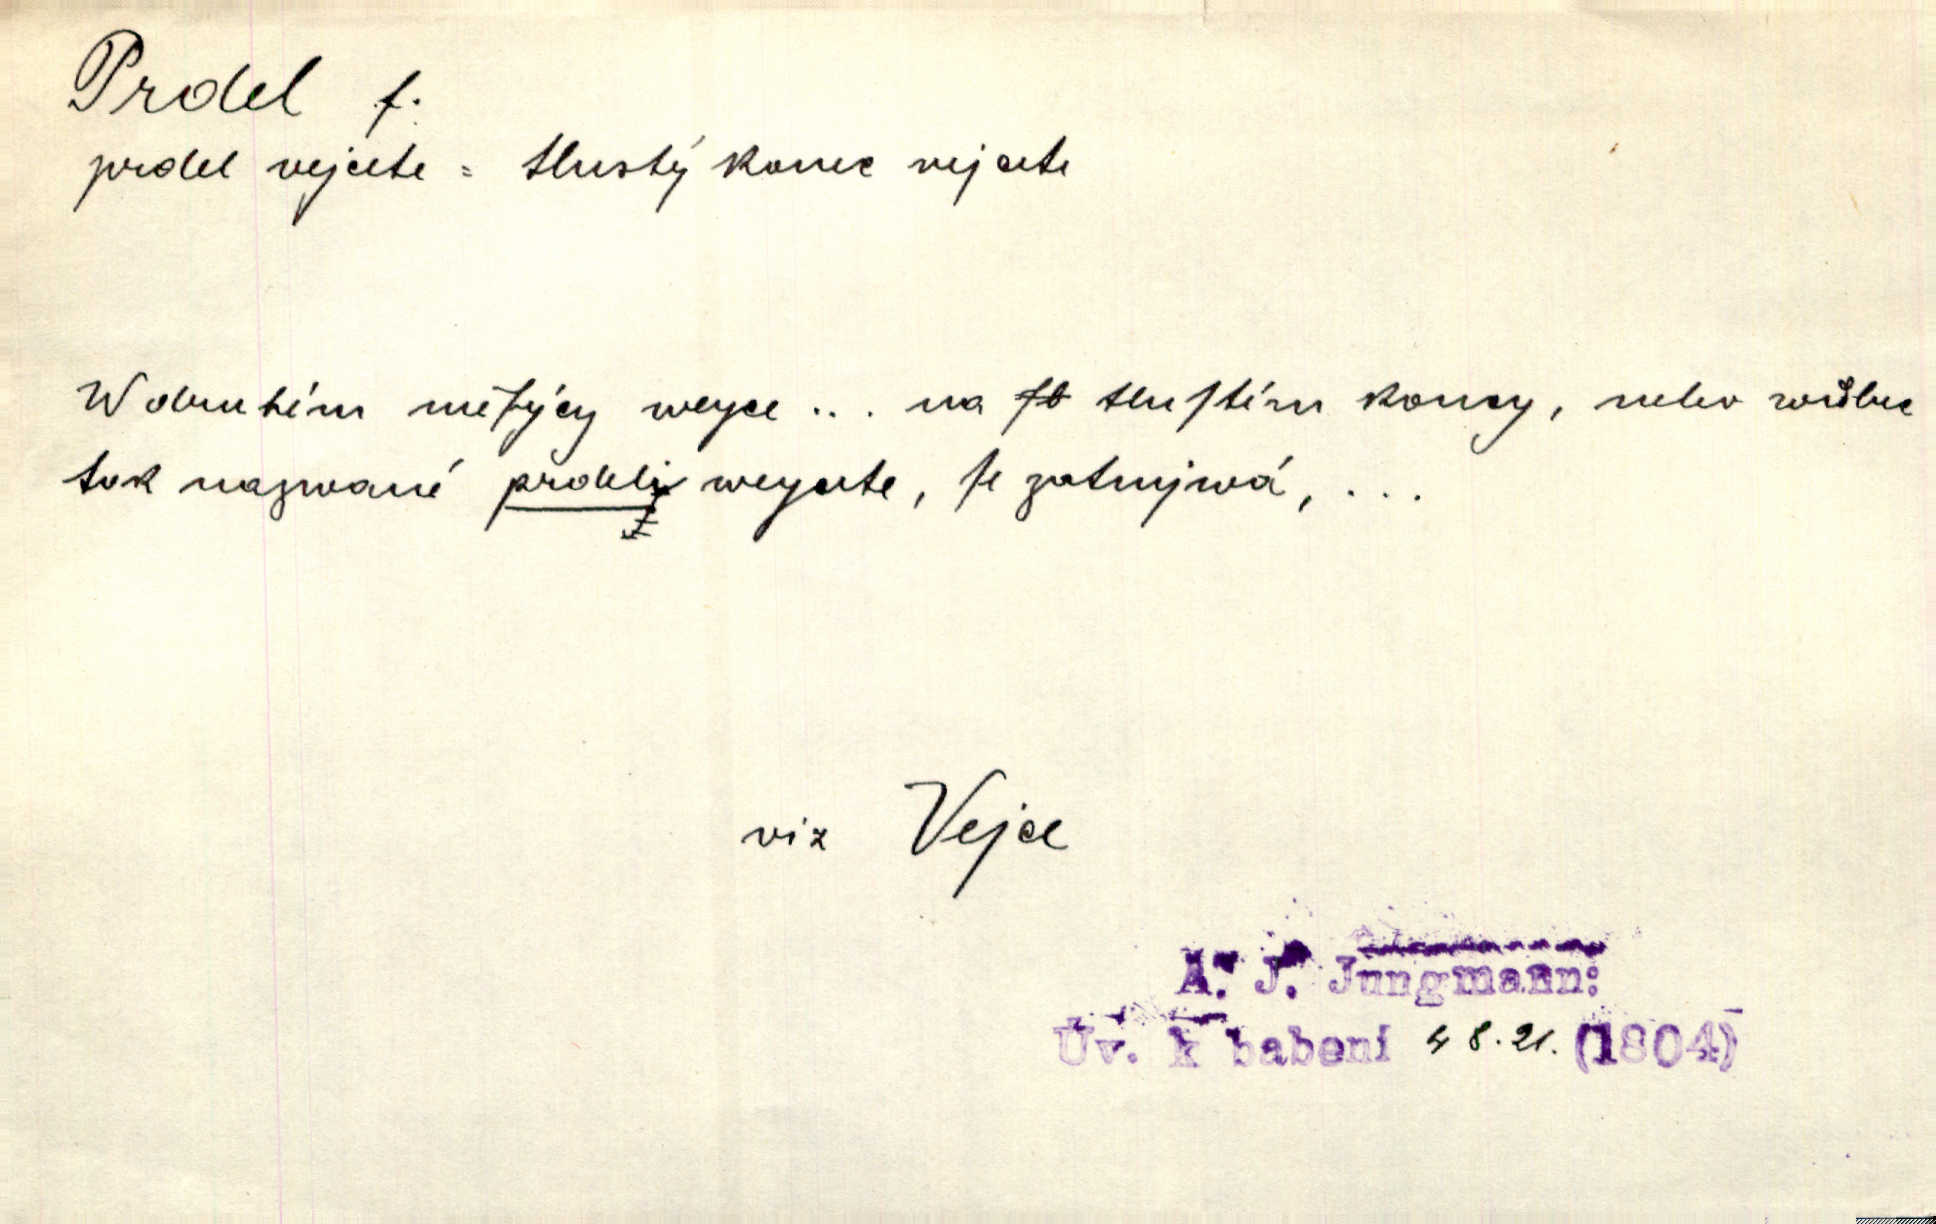 Prdel f.
prdel vejcete = tlustý konec vejcete
W druhém měſýcy weyce ... na tluſtém koncy, nebo wůbec
tak nazwané prdeli weycete, ſe zatmjwá, ...
viz Vejce
A. J. Jungmann:
Úv. k babení 48.21. (1804)